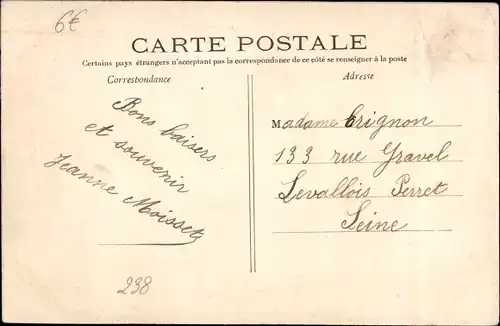 6€
CARTE POSTALE
Certains pays étrangers n'acceptant pas la correspondance de ce côté se renseigner à la poste
Correspondance
Adresse
Bons baisers
et souvenir
Jeanne Moisset
Madame Crignon
133 rue Gravel
Levallois Perret
Seine
238